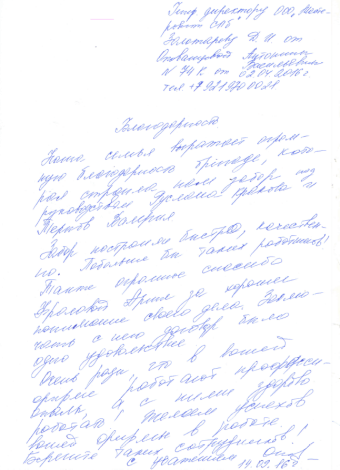 Ген. директору ООО "Мате-
рової САБ"
Золотарову Д. И от
Антонины
Васильевны
N 74 к от 02.04.2016 г
тел +7 921 970 00 28
Благодарность
Наша семья выражает огром-
ную благодарность бригаде, кото-
рая строила нам забор под
руководством Руслана и
Валерия
Забор построили быстро, качествен-
но. Побольше бы таких работников!
Также огромное спасибо
за хорошее
понимание своего дела. Заклю-
чать с ней договор было
одно удовольствие
Очень рады, что в вашей
фирме работают профессио-
налы, и с ними здорово
работать. Желаем успехов
вашей фирме в работе.
Берегите таких сотрудников!
С уважением
14.09.16 г